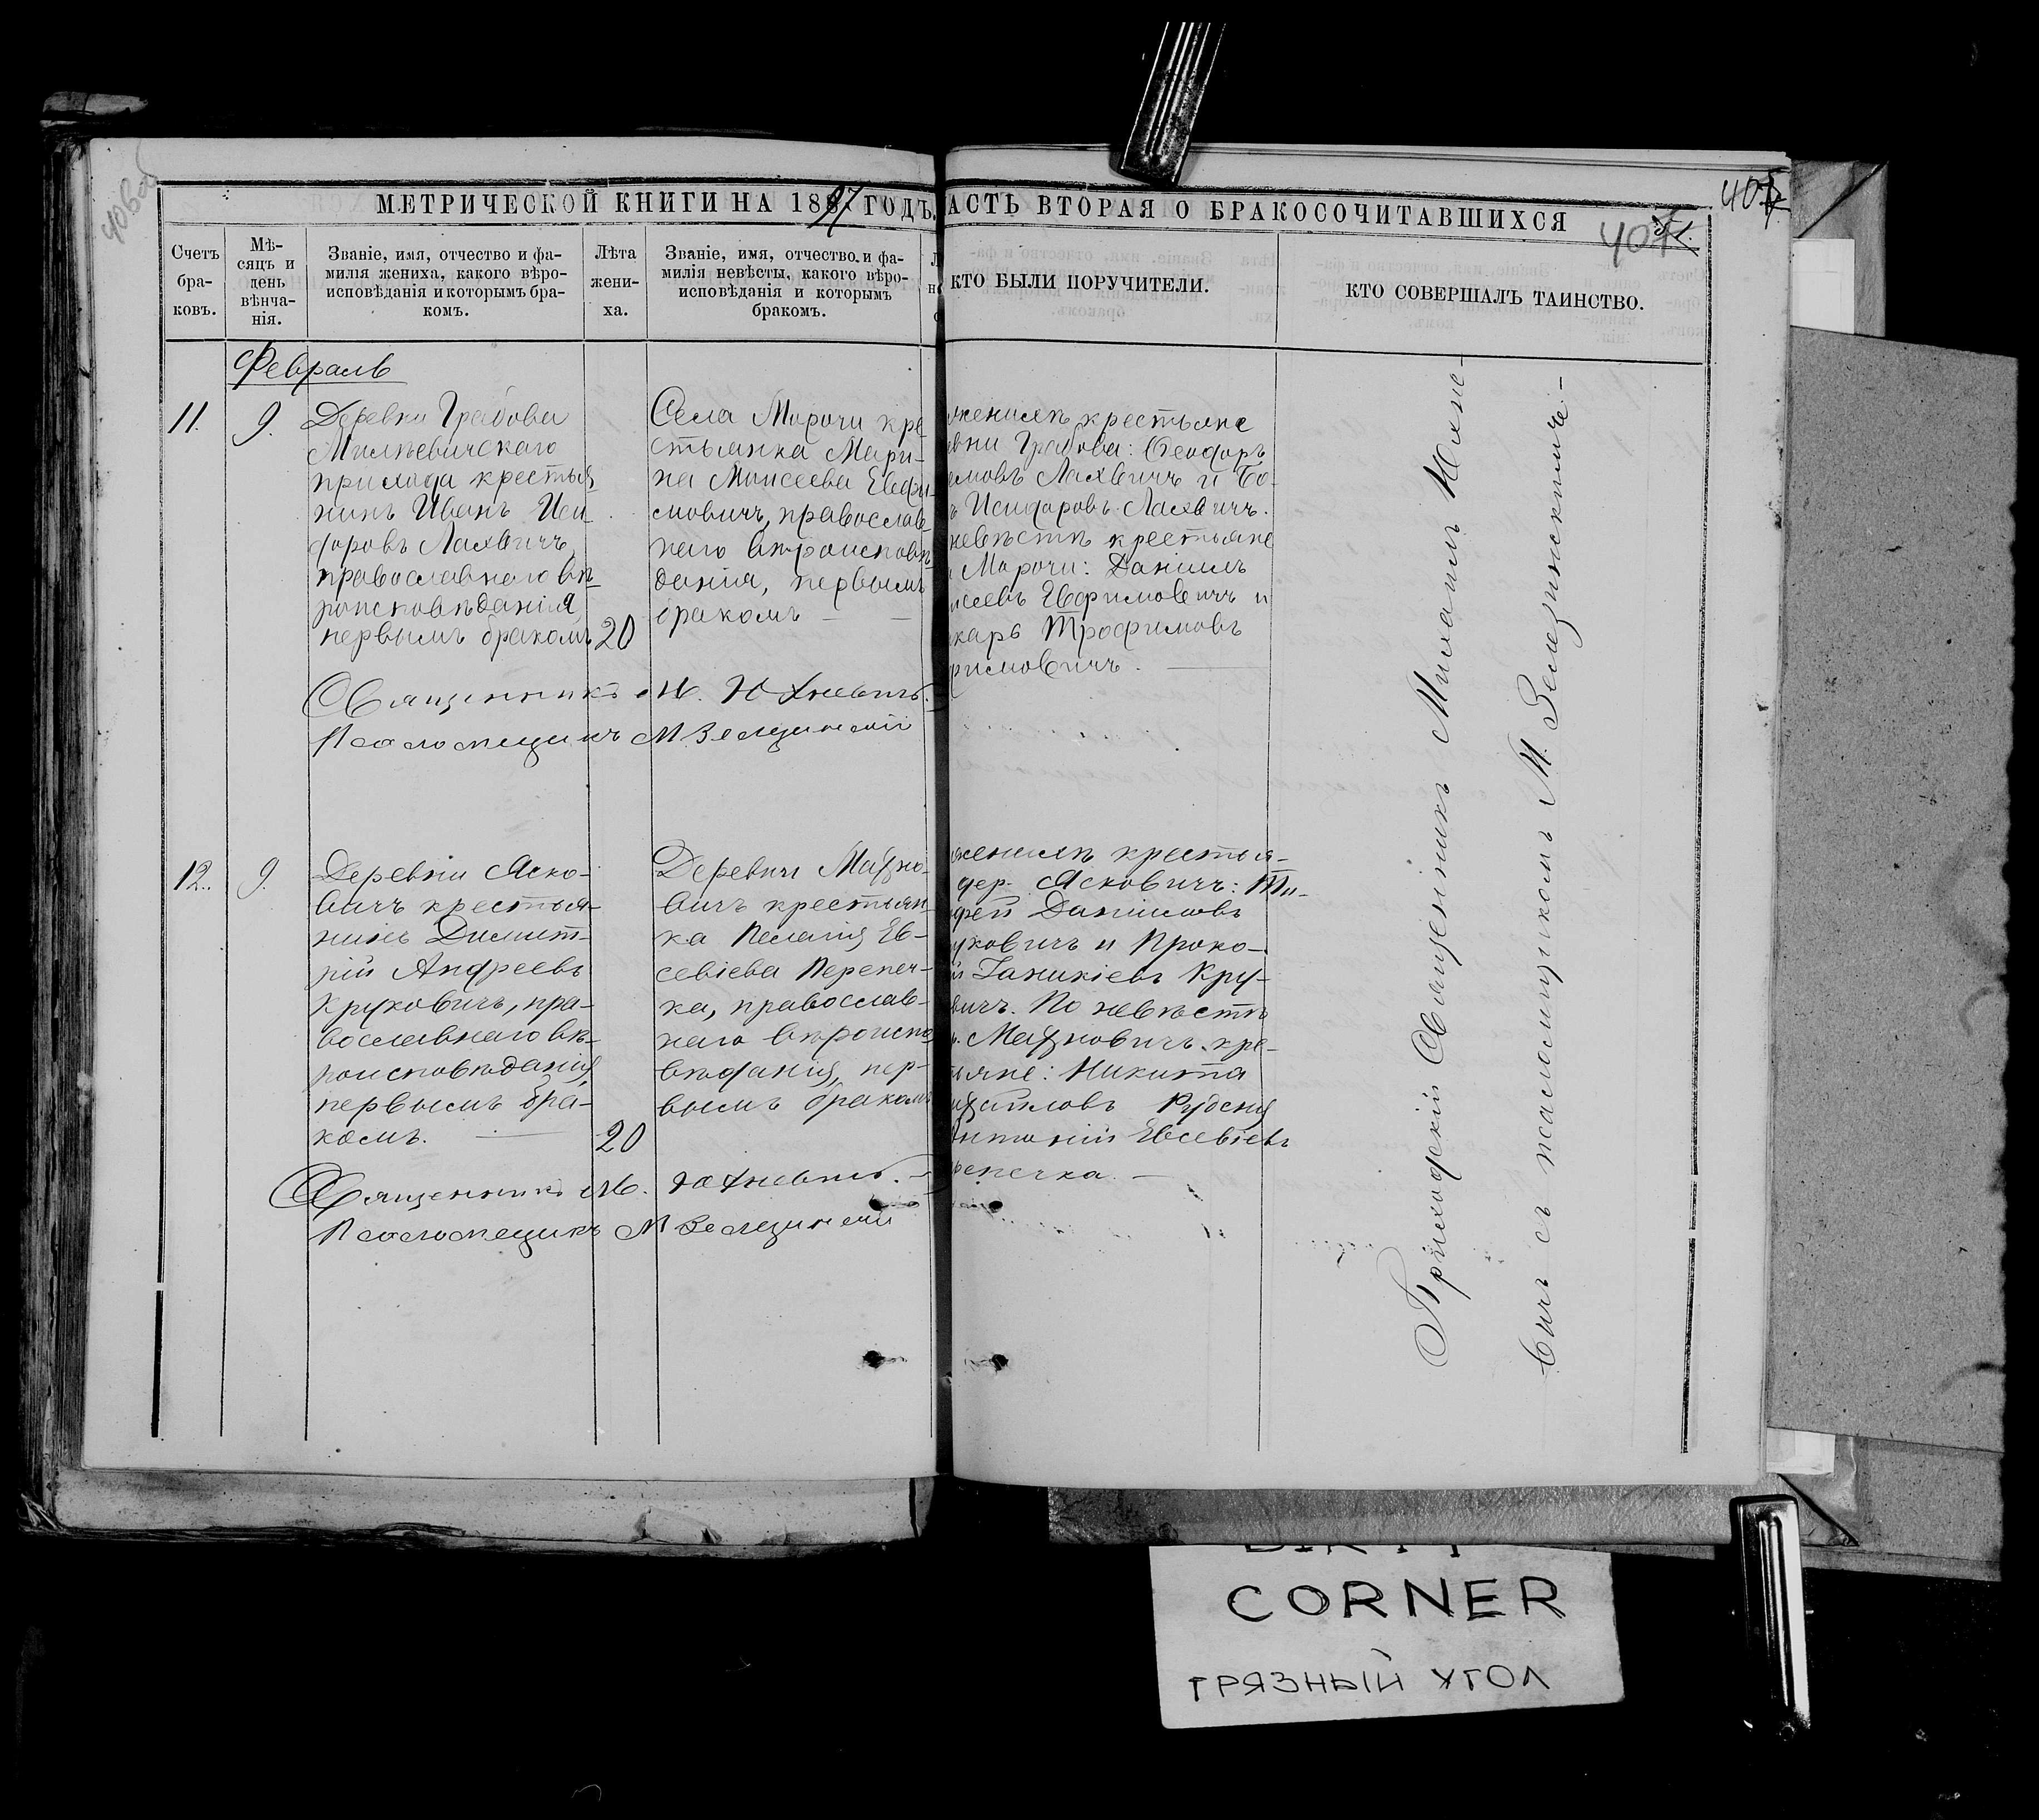 406об
МЕТРИЧЕСКОЙ КНИГИ НА 1897 ГОДЪ.
АСТЬ ВТОРАЯ О БРАКОСОЧИТАВШИХСЯ
407
407
Счетъ
бра-
ковъ.
Мѣ-
сяцъ и
день
вѣнча-
нія.
Званіе, имя, отчество и фа-
милія жениха, какого вѣро-
исповѣданія и которымъ бра-
комъ.
Лѣта
жени-
ха.
Званіе, имя, отчество и фа-
милія невѣсты, какого вѣро-
исповѣданія и которымъ
бракомъ.
КТО БЫЛИ ПОРУЧИТЕЛИ.
КТО СОВЕРШАЛЪ ТАИНСТВО.
Февраль
11.
9.
Деревни Грабова
Милевичскаго
прихода крестья
нинъ Иванъ Иси
доровъ Лахвичъ,
православнаго вѣ
роисповѣданія
первымъ бракомъ
20
Села Морочи кре
стьянка Мари-
на Моисеева Евфи-
мовичъ, православ
наго вѣроисповѣ
данія, первымъ
бракомъ —
женихѣ крестьяне
вни Грабова: Ѳеодоръ
имовъ Лахвичъ и Бо-
ъ Исидоровъ Лахвичъ.
невѣстѣ крестьяне
Морочи: Даніилъ
исеевъ Евфимовичъ и
харъ Трофимовъ
фимовичъ.
Священникъ М. Юхневичъ.
Псаломщикъ М Зелезинскій
12.
9.
Деревни Яско-
вичъ крестья-
нинъ Димит-
рій Андреевъ
Круковичъ, пра-
вославнаго вѣ-
роисповѣданія,
первымъ бра-
комъ.
20
Деревни Махно-
вичъ крестьян
ка Пелагія Ев-
севіева Перепеч-
ка, православ-
наго вѣроиспо
вѣданія, пер-
вымъ бракомъ
женихѣ крестья-
дер. Ясковичъ: Ти-
фей Даниловъ
уковичъ и Проко-
й Іаникіевъ Кру-
вичъ. По невѣстѣ
р. Махновичъ кре-
тьяне: Никита
Руденя
Антоній Евсевіевъ
репечка.
Священникъ М. Юхневичъ.
Псаломщикъ М Зелезинскій
Приходскій Священникъ Михаилъ Юхне-
вичъ съ псаломщикомъ М. Зелезинскимъ.
CORNER
ГРЯЗНЫЙ УГОЛ